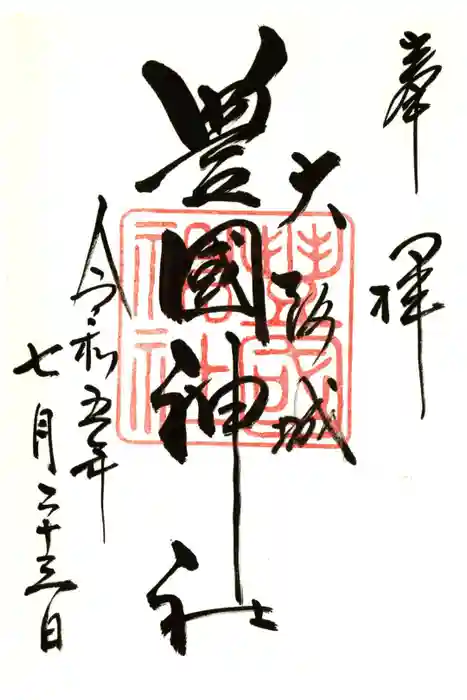 奉拝
大阪城
豊國神社
令和五年
七月二十三日
豊國
神社